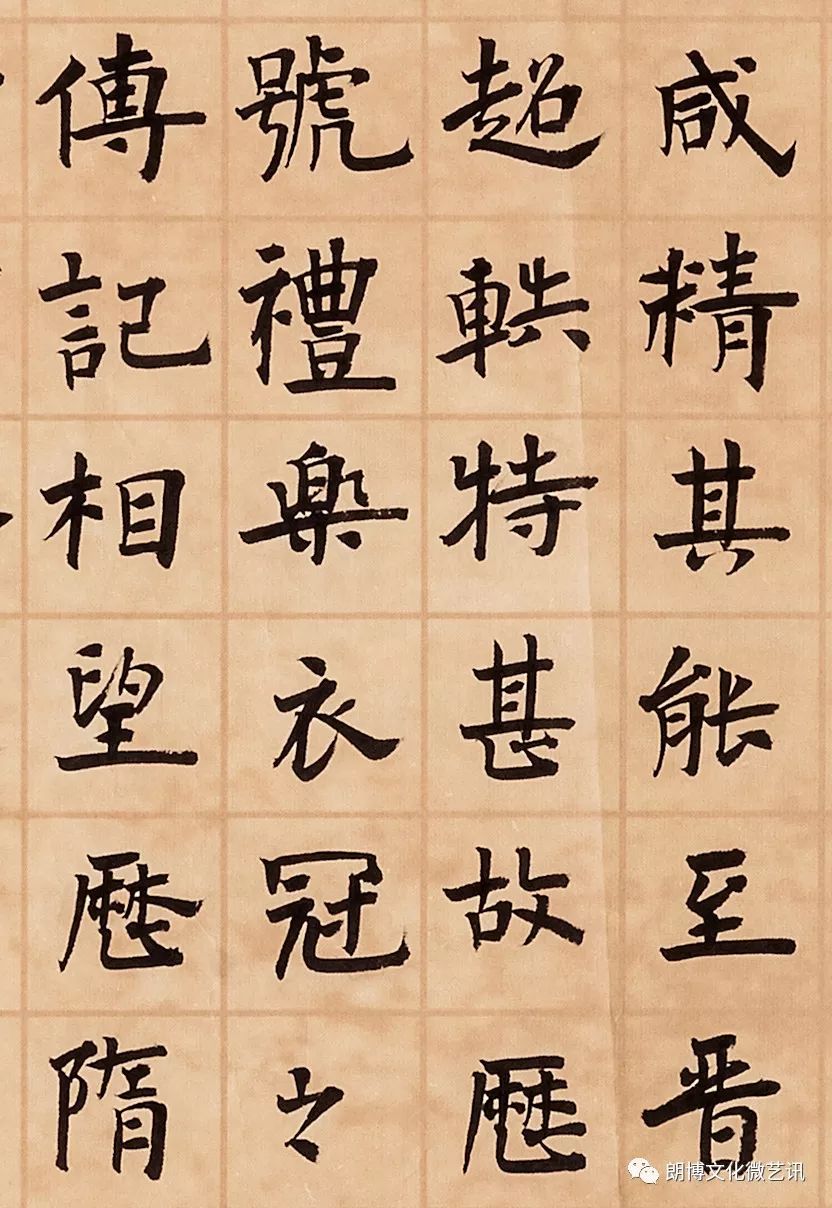 咸精其能至晋
超軼特甚故歷
號禮樂衣冠之
傳記相望歷隋
朗博文化微艺讯